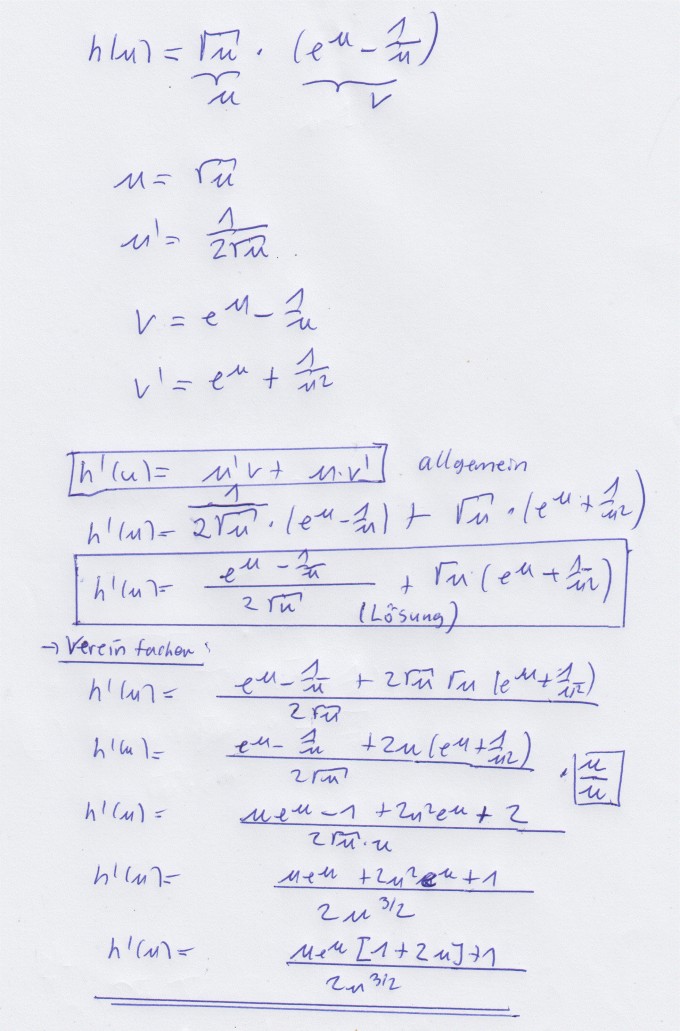 h(u) = √u · (e^u − 1/u)
u v
u = √u
u' = 1/(2√u)
v = e^u − 1/u
v' = e^u + 1/u²
h'(u) = u'v + u·v' allgemein
h'(u) = 1/(2√u) · (e^u − 1/u) + √u · (e^u + 1/u²)
h'(u) = (e^u − 1/u)/(2√u) + √u (e^u + 1/u²)
(Lösung)
→ Vereinfachen:
h'(u) = (e^u − 1/u + 2√u √u (e^u + 1/u²))/(2√u)
h'(u) = (e^u − 1/u + 2u(e^u + 1/u²))/(2√u) · u/u
h'(u) = (u e^u − 1 + 2u² e^u + 2)/(2√u · u)
h'(u) = (u e^u + 2u² e^u + 1)/(2u^3/2)
h'(u) = (u e^u [1 + 2u] + 1)/(2u^3/2)